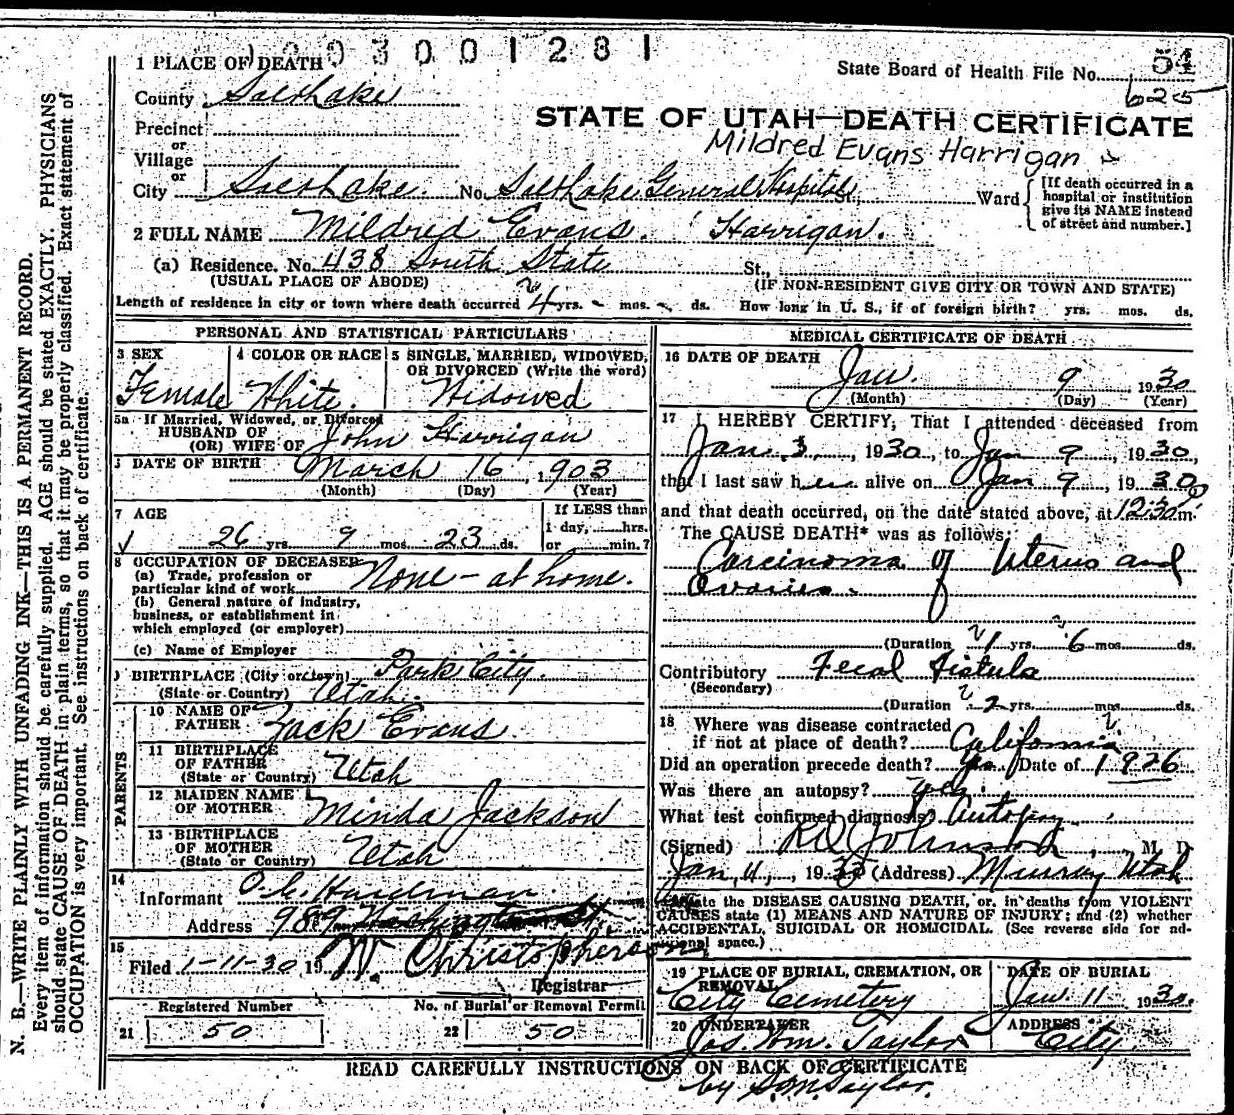 1003001281
1 PLACE OF DEATH
State Board of Health File No. 54
625
County Salt Lake
STATE OF UTAH—DEATH CERTIFICATE
Precinct
Mildred Evans Harrigan
or
Village
or
City Salt Lake. No. Salt Lake General Hospital St., Ward
[If death occurred in a
hospital or institution
give its NAME instead
of street and number.]
2 FULL NAME Mildred Evans Harrigan.
(a) Residence. No. 438 South State St.,
(USUAL PLACE OF ABODE) (IF NON-RESIDENT GIVE CITY OR TOWN AND STATE)
Length of residence in city or town where death occurred 4 yrs. - mos. - ds. How long in U. S., if of foreign birth? yrs. mos. ds.
PERSONAL AND STATISTICAL PARTICULARS
3 SEX 4 COLOR OR RACE 5 SINGLE, MARRIED, WIDOWED,
OR DIVORCED (Write the word)
Female White. Widowed
5a If Married, Widowed, or Divorced
HUSBAND OF
(OR) WIFE OF John Harrigan
DATE OF BIRTH March 16, 1903
(Month) (Day) (Year)
7 AGE If LESS than
1 day, hrs.
26 yrs. 9 mos. 23 ds. or min.?
8 OCCUPATION OF DECEASED
(a) Trade, profession or
particular kind of work None - at home.
(b) General nature of industry,
business, or establishment in
which employed (or employer)
(c) Name of Employer
9 BIRTHPLACE (City or town) Park City.
(State or Country) Utah.
PARENTS
10 NAME OF
FATHER Zack Evans
11 BIRTHPLACE
OF FATHER
(State or Country) Utah
12 MAIDEN NAME
OF MOTHER Minda Jackson
13 BIRTHPLACE
OF MOTHER
(State or Country) Utah
14
Informant
Address 989
15
Filed 1-11-30 19 W. Christopherson
Registrar
Registered Number No. of Burial or Removal Permit
21 50 22 50
MEDICAL CERTIFICATE OF DEATH
16 DATE OF DEATH
Jan. 9 1930
(Month) (Day) (Year)
17 I HEREBY CERTIFY, That I attended deceased from
Jan. 3, 1930, to Jan 9, 1930,
that I last saw her alive on Jan 9, 1930
and that death occurred, on the date stated above, at 12:30 m.
The CAUSE DEATH* was as follows:
Carcinoma of Uterus and
Ovaries.
(Duration 1 yrs. 6 mos. ds.
Contributory Fecal Fistula
(Secondary)
(Duration 2 yrs. mos. ds.
18 Where was disease contracted
if not at place of death? California
Did an operation precede death? Yes. Date of 1926
Was there an autopsy? yes.
What test confirmed diagnosis? Autopsy
(Signed) Johnston, M. D.
Jan, 11, 1930 (Address) Murray Utah
state the DISEASE CAUSING DEATH, or, in deaths from VIOLENT
CAUSES state (1) MEANS AND NATURE OF INJURY; and (2) whether
ACCIDENTAL, SUICIDAL OR HOMICIDAL. (See reverse side for ad-
ditional space.)
19 PLACE OF BURIAL, CREMATION, OR
REMOVAL
City Cemetery
DATE OF BURIAL
Jan 11 1930.
20 UNDERTAKER
Jos. Wm. Taylor
ADDRESS
City
READ CAREFULLY INSTRUCTIONS ON BACK OF CERTIFICATE
by S.M. Taylor.
N. B.—WRITE PLAINLY WITH UNFADING INK—THIS IS A PERMANENT RECORD.
Every item of information should be carefully supplied. AGE should be stated EXACTLY. PHYSICIANS
should state CAUSE OF DEATH in plain terms, so that it may be properly classified. Exact statement of
OCCUPATION is very important. See instructions on back of certificate.